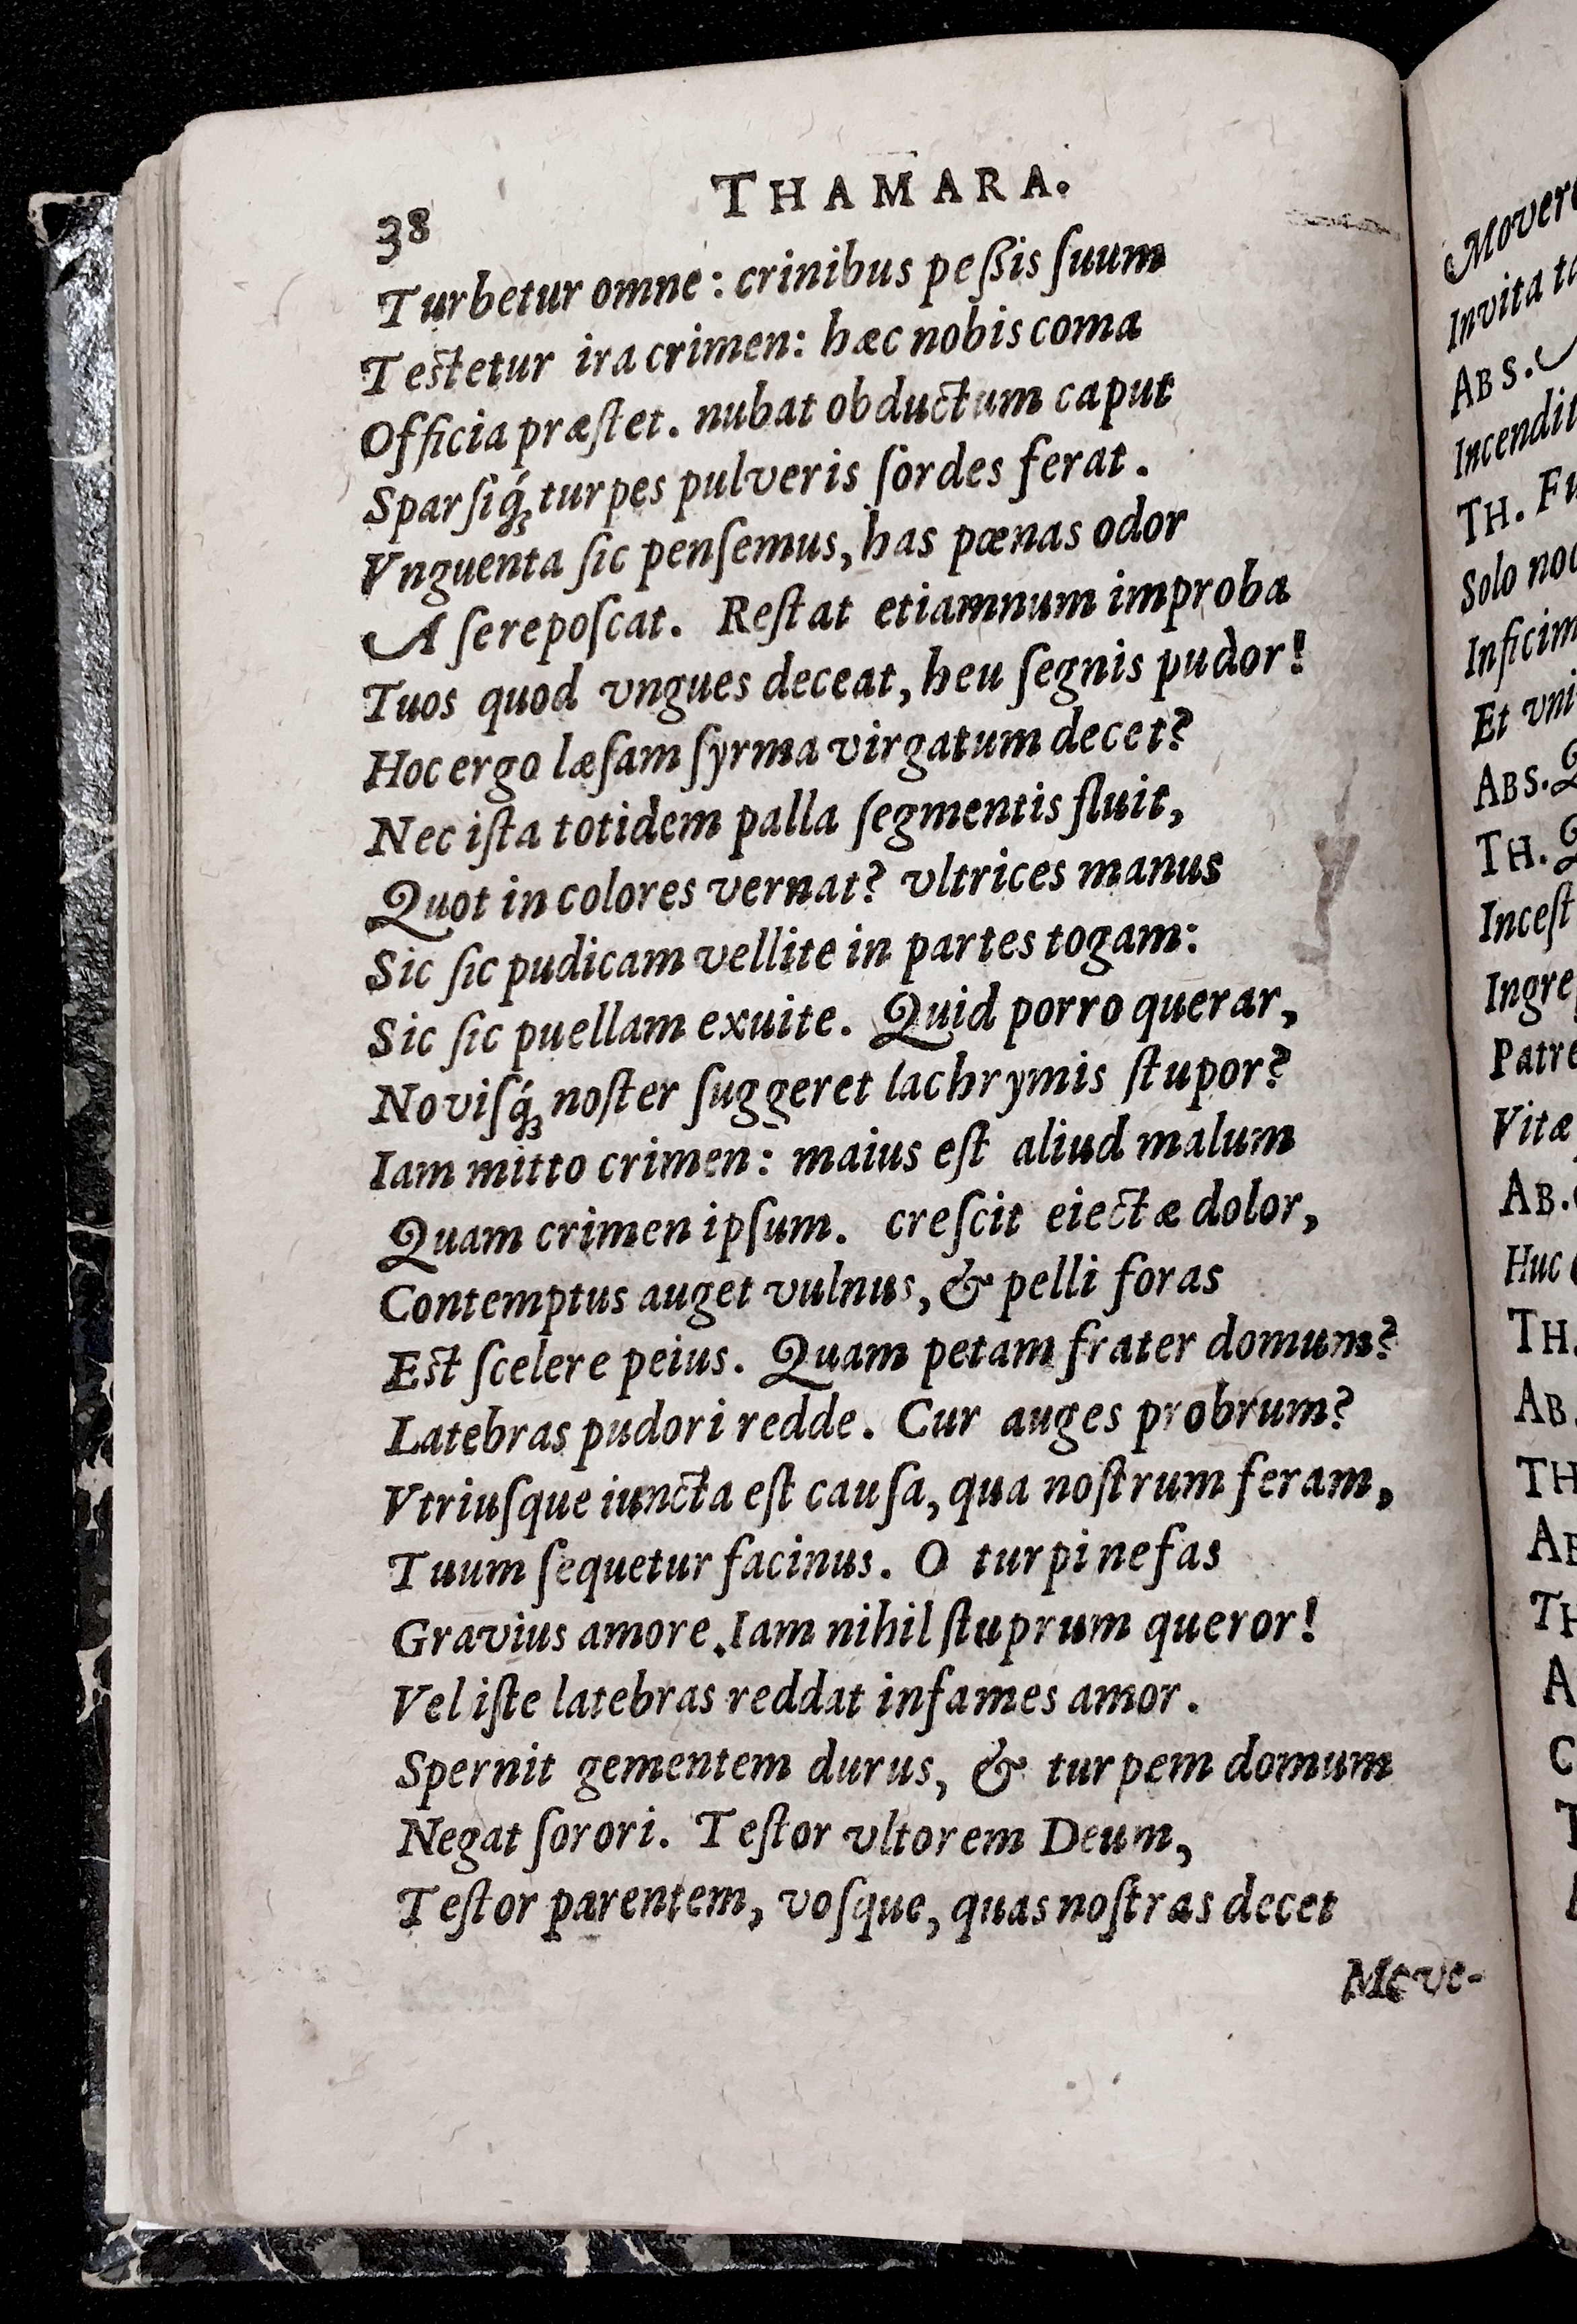 38 THAMARA.
Turbetur omne: crinibus peſsis ſuum
Teſtetur ira crimen: hæc nobis coma
Officia præſtet. nubat obductum caput
Sparſiq́ꝫ turpes pulveris ſordes ferat.
Vnguenta ſic penſemus, has pœnas odor
A ſe repoſcat. Reſtat etiamnum improba
Tuos quod vngues deceat, heu ſegnis pudor!
Hoc ergo læſam ſyrma virgatum decet?
Nec iſta totidem palla ſegmentis fluit,
Quot in colores vernat? vltrices manus
Sic ſic pudicam vellite in partes togam:
Sic ſic puellam exuite. Quid porro querar,
Noviſq́ꝫ noſter ſuggeret lachrymis ſtupor?
Iam mitto crimen: maius eſt aliud malum
Quam crimen ipſum. creſcit eiectæ dolor,
Contemptus auget vulnus, & pelli foras
Eſt ſcelere peius. Quam petam frater domum?
Latebras pudori redde. Cur auges probrum?
Vtriuſque iuncta eſt cauſa, qua noſtrum feram,
Tuum ſequetur facinus. O turpi nefas
Gravius amore. Iam nihil ſtuprum queror!
Vel iſte latebras reddat infames amor.
Spernit gementem durus, & turpem domum
Negat ſorori. Teſtor vltorem Deum,
Teſtor parentem, voſque, quas noſtras decet
Move-
Invita
ABS.
TH.
Solo
Et
ABS.
TH.
AB.
Huc
TH.
AB.
TH